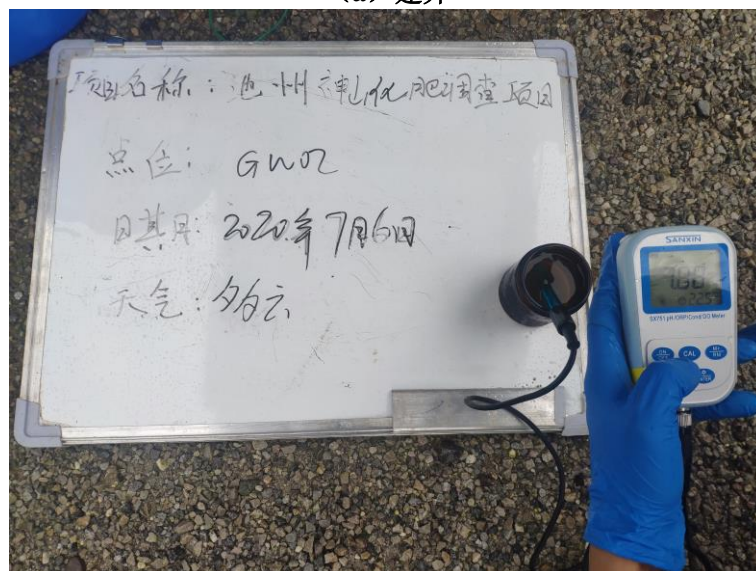 项目名称：池州神山化肥调查项目
点位：GW02
日期：2020年7月6日
天气：多云
SANXIN
SX751 pH/ORP/Cond/DO Meter
CAL